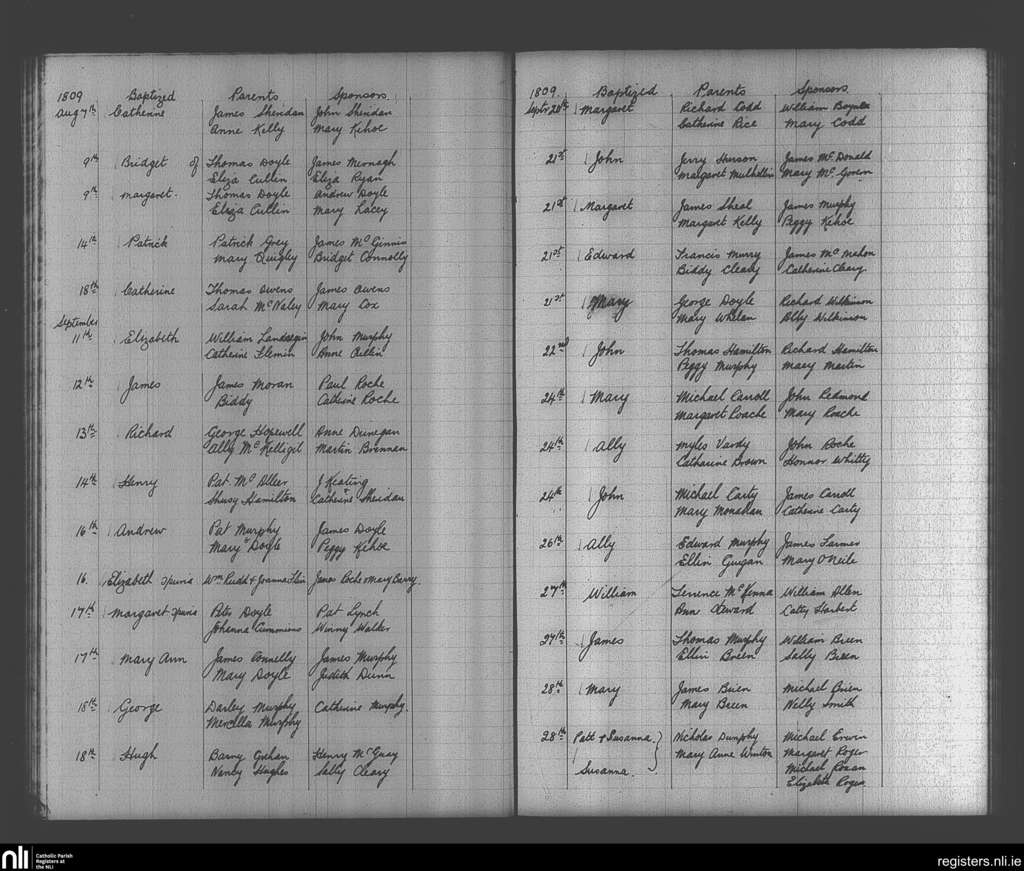 1809 Baptized Parents Sponsors.
Aug 7th Catherine James Sheridan John Sheridan
Anne Kelly Mary Kehoe
9th Bridget of Thomas Doyle James Mernagh
Eliza Cullin Eliza Ryan
9th Margaret. Thomas Doyle Andrew Doyle
Eliza Cullin Mary Lacey
14th Patrick Patrick Grey James McGinnis
Mary Quigley Bridget Connolly
18th Catherine Thomas Owens James Owens
Sarah McNaley Mary Cox
September
11th Elizabeth William John Murphy
Catherine Flemin Anne
12th James James Moran Paul Roche
Biddy Catherine Roche
13th Richard George Hopewell Anne Dunegan
Ally McKelliget Martin Brennan
14th Henry Pat McAlleer J Keating
Shusy Hamilton Catherine Sheridan
16th Andrew Pat Murphy James Doyle
Mary Doyle Peggy Kehoe
16. Elizabeth Spuria Wm Rudd & Joanna James Roche & Mary Barry.
17th Margaret Spuria Peter Doyle Pat Lynch
Johanna Cummins Winny Walker
17th Mary Ann James Connelly James Murphy
Mary Doyle Judith Dunn
18th George Darley Murphy Catherine Murphy.
Murphy
18th Hugh Barny Henry McQuay
Nancy Hughes Sally Cleary
1809. Baptized Parents Sponsors.
Septr 20th Margaret Richard Codd William
Catherine Rice Mary Codd
21st John Jerry James McDonald
Margaret Mary
21st Margaret James Sheal James Murphy
Margaret Kelly Peggy Kehoe
21st Edward Francis Murry James McMahon
Biddy Cleary Catherine Cleary
21st Mary George Doyle Richard Wilkinson
Mary Whelan Ally Wilkinson
22nd John Thomas Hamilton Richard Hamilton
Peggy Murphy Mary Martin
24th Mary Michael Carroll John Redmond
Margaret Roache Mary Roache
24th Ally Myles Vardy John Roche
Catharine Brown Honnor Whitty
24th John Michael Carty James Carroll
Mary Monahan Catherine Carty
26th Ally Edward Murphy James Farmer
Ellin Guigan Mary O'Neile
27th William Terrence McKenna William Allen
Ann Catty Harbert
27th James Thomas Murphy William Breen
Ellin Breen Sally Breen
28th Mary James Brien Michael Brien
Mary Breen Nelly Smith
28th Patt & Susanna. Nicholas Dunphy Michael Erwin
Mary Anne Winton Margaret Roger
Susanna. Michael Ronan
Elizabeth Roger
nli
Catholic Parish
Registers at
the NLI
registers.nli.ie